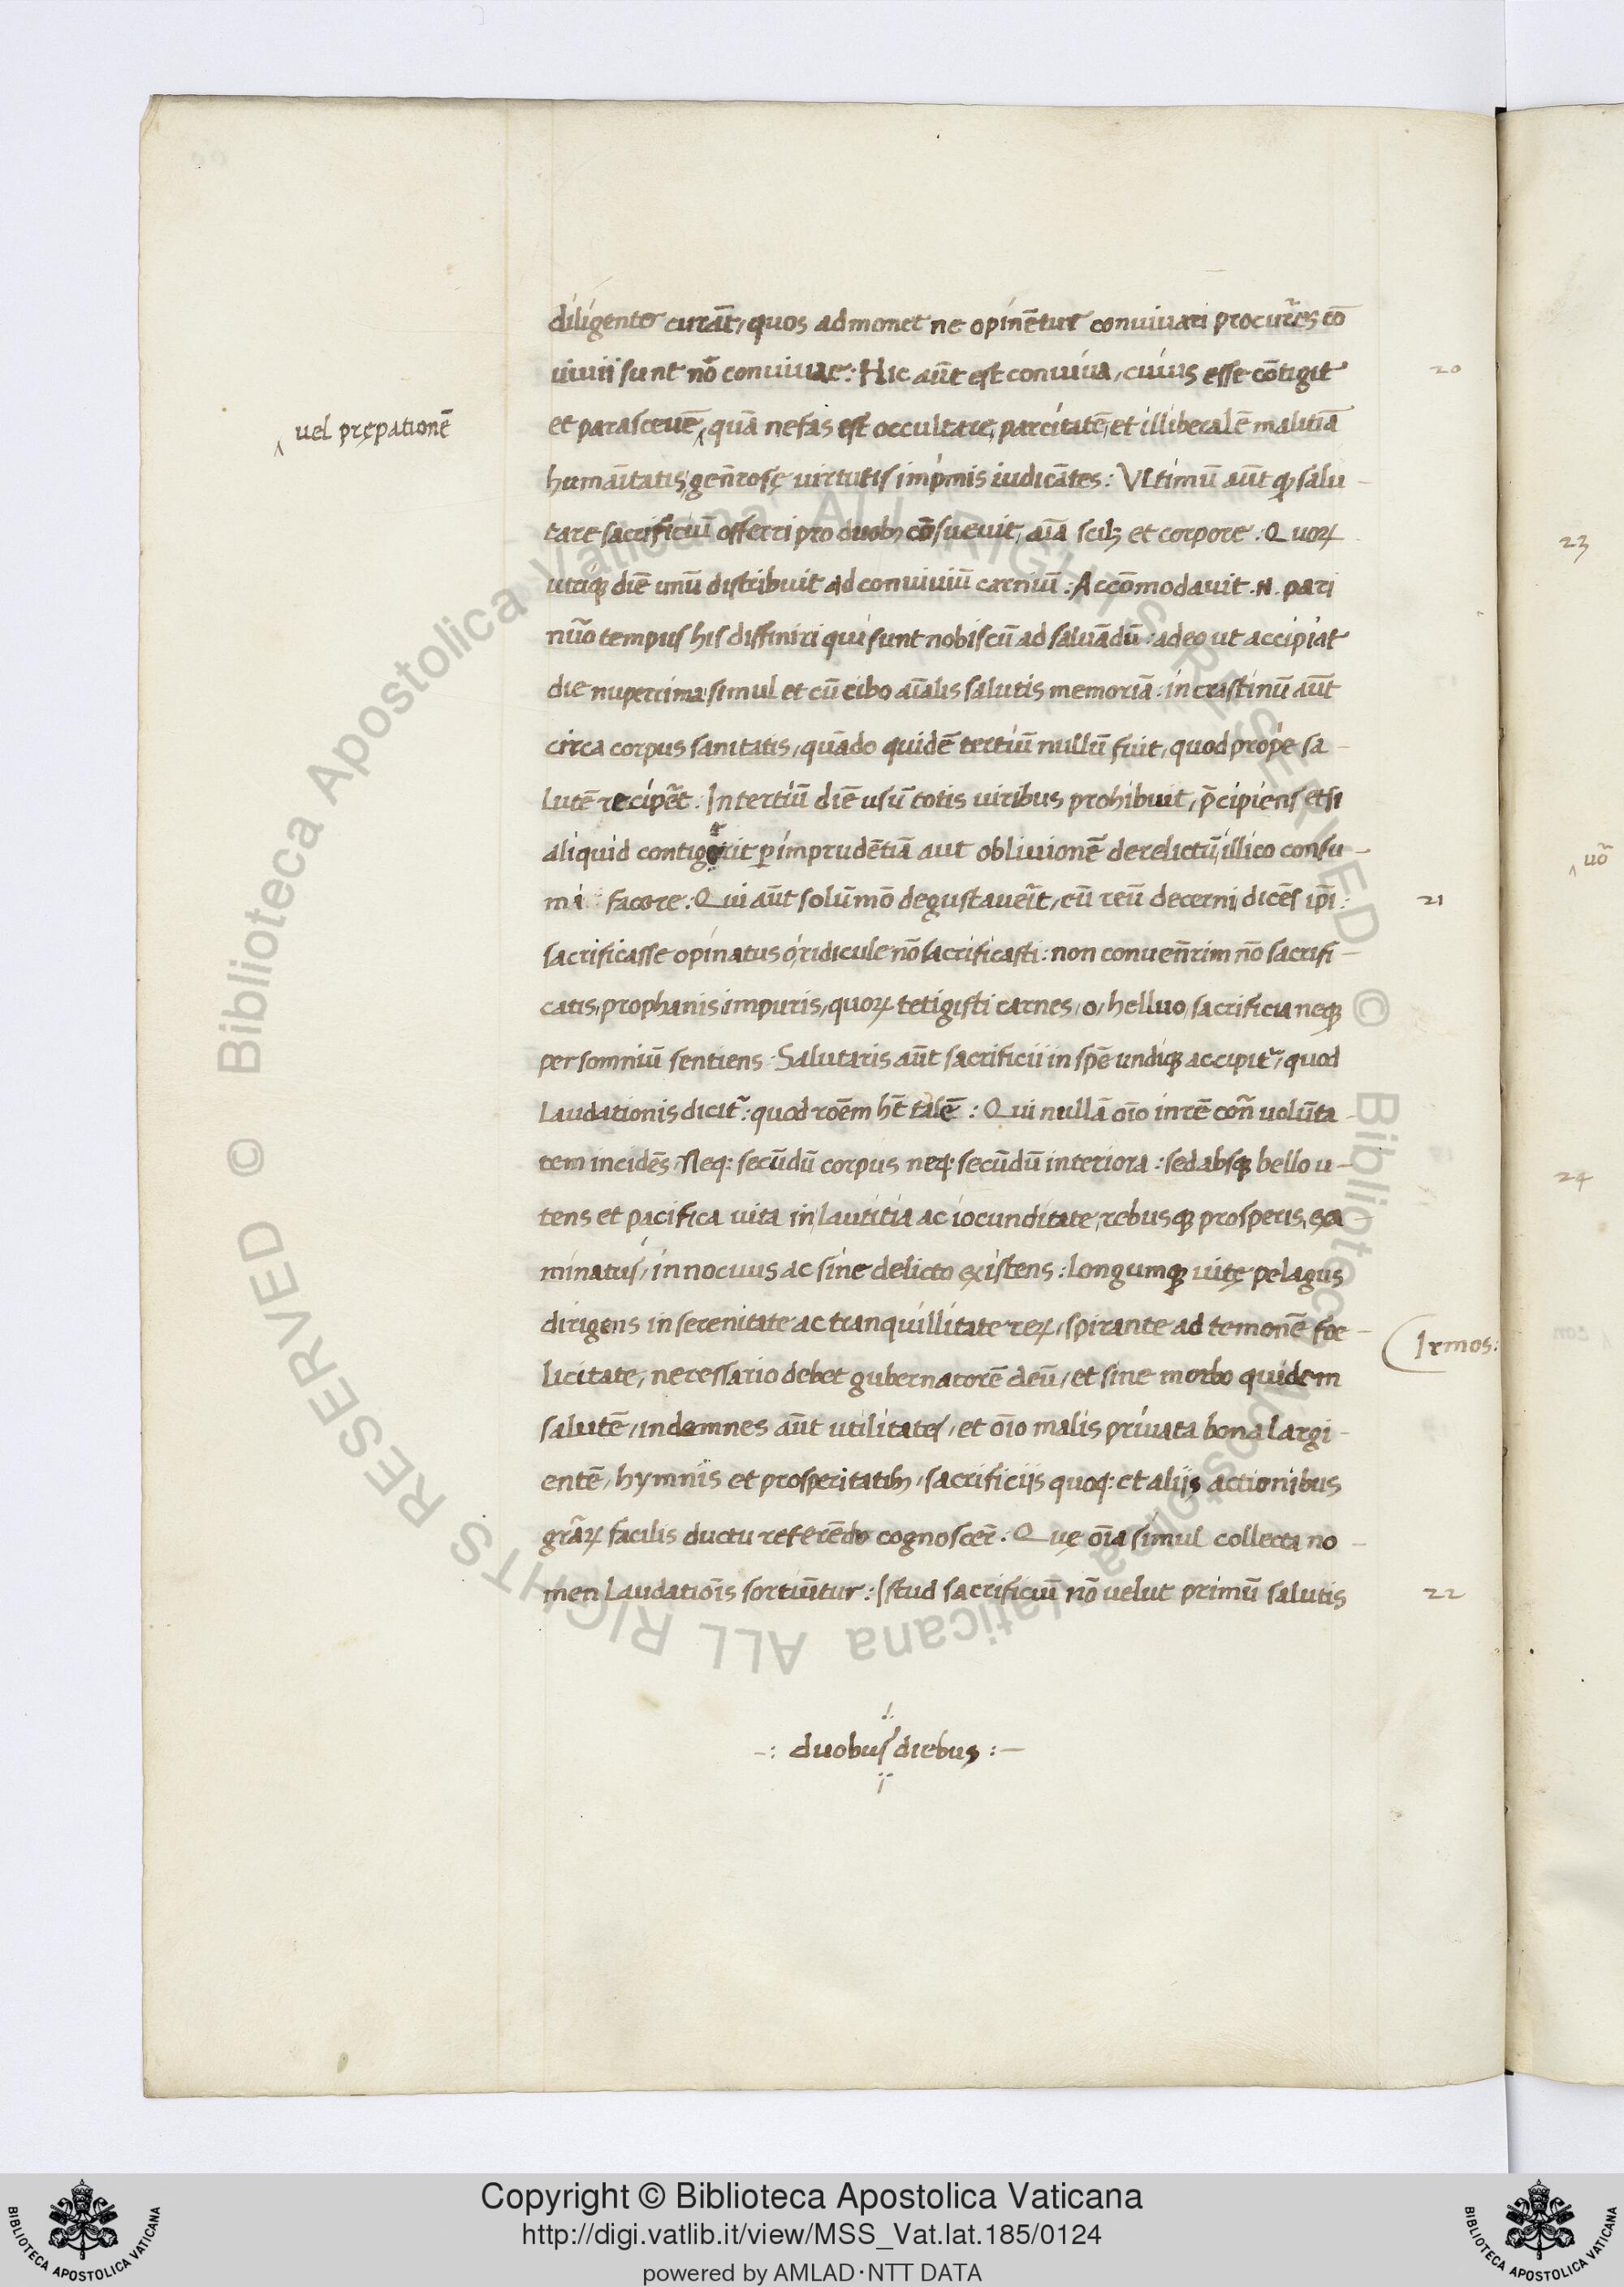 diligenter curāt, quos admonet ne opinētur conuiuari procur̄es cō
uiuii sunt nō conuiuae: Hic aūt est conuiua, cuius esse cōtigit
et parasceuē, quā nefas est occultare, parcitatē, et illiberalē malitiā
uel prępationē
humāitatis, geñrosę uirtutis imp̄mis iudicātes: Vltimū aūt qꝫ salu-
tare sacrificiū offerri pro duobꝫ cōsueuit, aīa scilꝫ et corpore. Quoꝝ
utriqꝫ diē unū distribuit ad conuiuiū carniū: Accōmodauit .N. pari
nūo tempus his diffiniri qui sunt nobiscū ad saluādū: adeo ut accipiat
die nuperrima simul et cū cibo aīalis salutis memoriā: in crastinū aūt
circa corpus sanitatis, quādo quidē tertiū nullū fuit, quod prope sa-
lutē recip̄et. In tertiū diē usū totis uiribus prohibuit, p̄cipiens etsi
aliquid contigerit ꝑ imprudētiā aut obliuionē derelictū, illico consu-
mi facere. Qui aūt solūmō degustauer̄it, cū reū decerni, dicēs ip̄i:
sacrificasse opinatus o, ridicule nō sacrificasti: non conueñrim nō sacrifi-
catis, prophanis impuris, quoꝝ tetigisti carnes, o, helluo, sacrificia neqꝫ
per somniū sentiens. Salutaris aūt sacrificii in spē undiqꝫ accipit̄, quod
Laudationis dicit̄: quod roēm hēt talē: Qui nullā oīo in rē coñ uolūta-
tem incidēs, Neqꝫ secūdū corpus neqꝫ secūdū interiora: sed absqꝫ bello u-
tens et pacifica uita in lautitia ac iocunditate, rebusqꝫ prosperis, exa-
minatus, innocuus ac sine delicto existens: longumqꝫ uitę pelagus
dirigens in serenitate ac tranquillitate reꝝ, spirante ad temonē foe-
licitate, necessario debet gubernatorē deū, et sine morbo quidem
salutē, indemnes aūt utilitates, et oīo malis priuata bona largi-
entē, hymnis et prosperitatibꝫ, sacrificijs quoqꝫ et alijs actionibus
gr̄aꝝ facilis ductu referēdo cognoscer̄. Quę oīa simul collecta no-
men Laudatiōis sortiūtur: Istud sacrificiū nō uelut primū salutis
-: duobus diebus :-
20
21
Irmos:
22
23
uō
24
Copyright © Biblioteca Apostolica Vaticana
http://digi.vatlib.it/view/MSS_Vat.lat.185/0124
powered by AMLAD·NTT DATA
BIBLIOTECA APOSTOLICA VATICANA
BIBLIOTECA APOSTOLICA VATICANA
© Biblioteca Apostolica Vaticana ALL RIGHTS RESERVED © Biblioteca Apostolica Vaticana ALL RIGHTS RESERVED